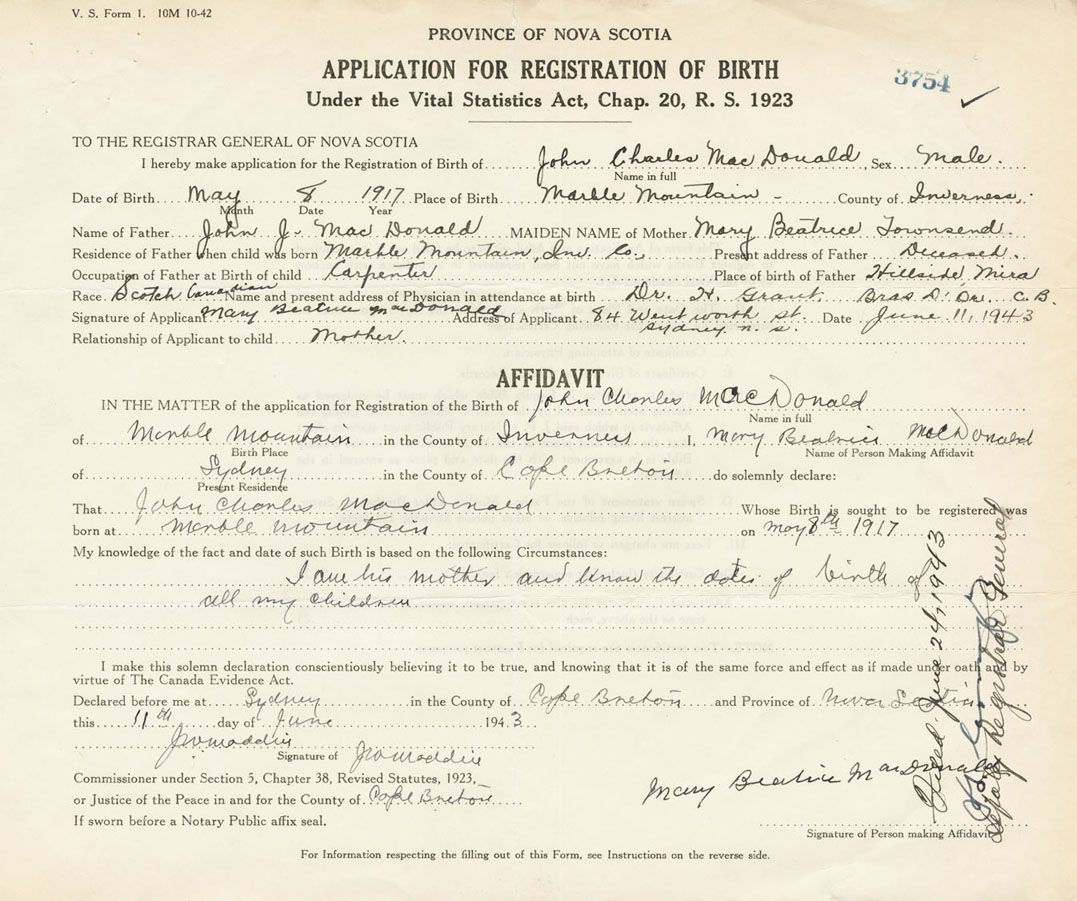 V. S. Form 1. 10M 10-42
PROVINCE OF NOVA SCOTIA
APPLICATION FOR REGISTRATION OF BIRTH
3754
Under the Vital Statistics Act, Chap. 20, R. S. 1923
TO THE REGISTRAR GENERAL OF NOVA SCOTIA
I hereby make application for the Registration of Birth of John Charles MacDonald Sex Male.
Name in full
Date of Birth May 8 1917 Place of Birth Marble Mountain - County of Inverness.
Month Date Year
Name of Father John J. MacDonald MAIDEN NAME of Mother Mary Beatrice Townsend.
Residence of Father when child was born Marble Mountain, Inv. Co., Present address of Father Deceased.
Occupation of Father at Birth of child Carpenter Place of birth of Father Hillside, Mira
Race. Scotch Canadian Name and present address of Physician in attendance at birth Dr. H. Grant, Bras D'Or. C. B.
Signature of Applicant Mary Beatrice MacDonald Address of Applicant 84 Wentworth st. Date June 11, 1943
Sydney n. s.
Relationship of Applicant to child Mother.
AFFIDAVIT
IN THE MATTER of the application for Registration of the Birth of John Charles MacDonald
Name in full
of Marble Mountain in the County of Inverness I, Mary Beatrice MacDonald
Birth Place Name of Person Making Affidavit
of Sydney in the County of Cape Breton do solemnly declare:
Present Residence
That John Charles MacDonald Whose Birth is sought to be registered was
born at Marble Mountain on May 8th 1917
My knowledge of the fact and date of such Birth is based on the following Circumstances:
I am his mother and know the dates of birth of
all my children
I make this solemn declaration conscientiously believing it to be true, and knowing that it is of the same force and effect as if made under oath and by
virtue of The Canada Evidence Act.
Declared before me at Sydney in the County of Cape Breton and Province of Nova Scotia
this 11th day of June 1943
Signature of
Commissioner under Section 5, Chapter 38, Revised Statutes, 1923,
or Justice of the Peace in and for the County of Cape Breton
Mary Beatrice MacDonald
If sworn before a Notary Public affix seal.
Signature of Person making Affidavit
For Information respecting the filling out of this Form, see Instructions on the reverse side.
Filed June 24, 1943
Deputy Registrar General